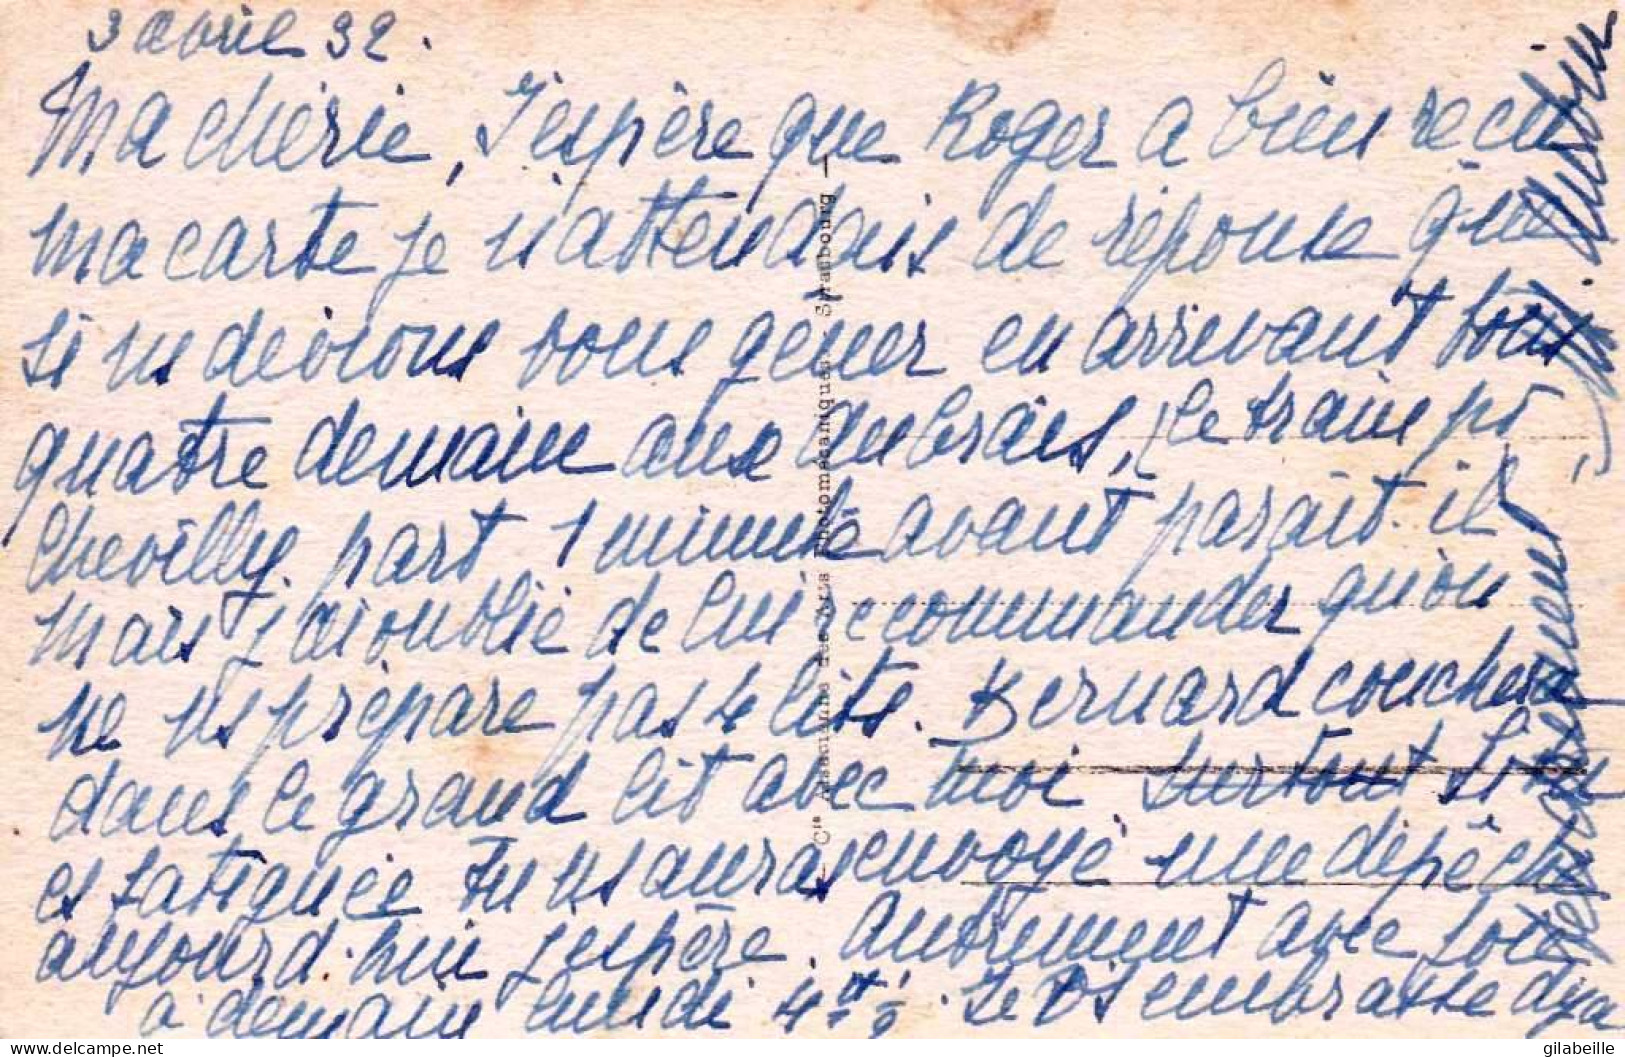 3 avril 32.
Ma chérie, J'espère que Roger a bien recu
ma carte je n'attendais de réponse que
si ns devions vous gener en arrivant tous
quatre demain aux Aubrais, le train pr
Chevilly. part 1 minute avant parait. il
mais j'ai oublié de lui recommander qu'on
ne ns prépare pas 4 lits. Bernard couchera
dans le grand lit avec moi surtout si tu
es fatiguée tu ns auras envoyé une dépêche
aujourd'hui j'espère. Autrement avec joie
à demain lundi 4. Je vs embrasse
tendrement
Cie Alsacienne des Arts Photomécaniques - Strasbourg
gilabeille